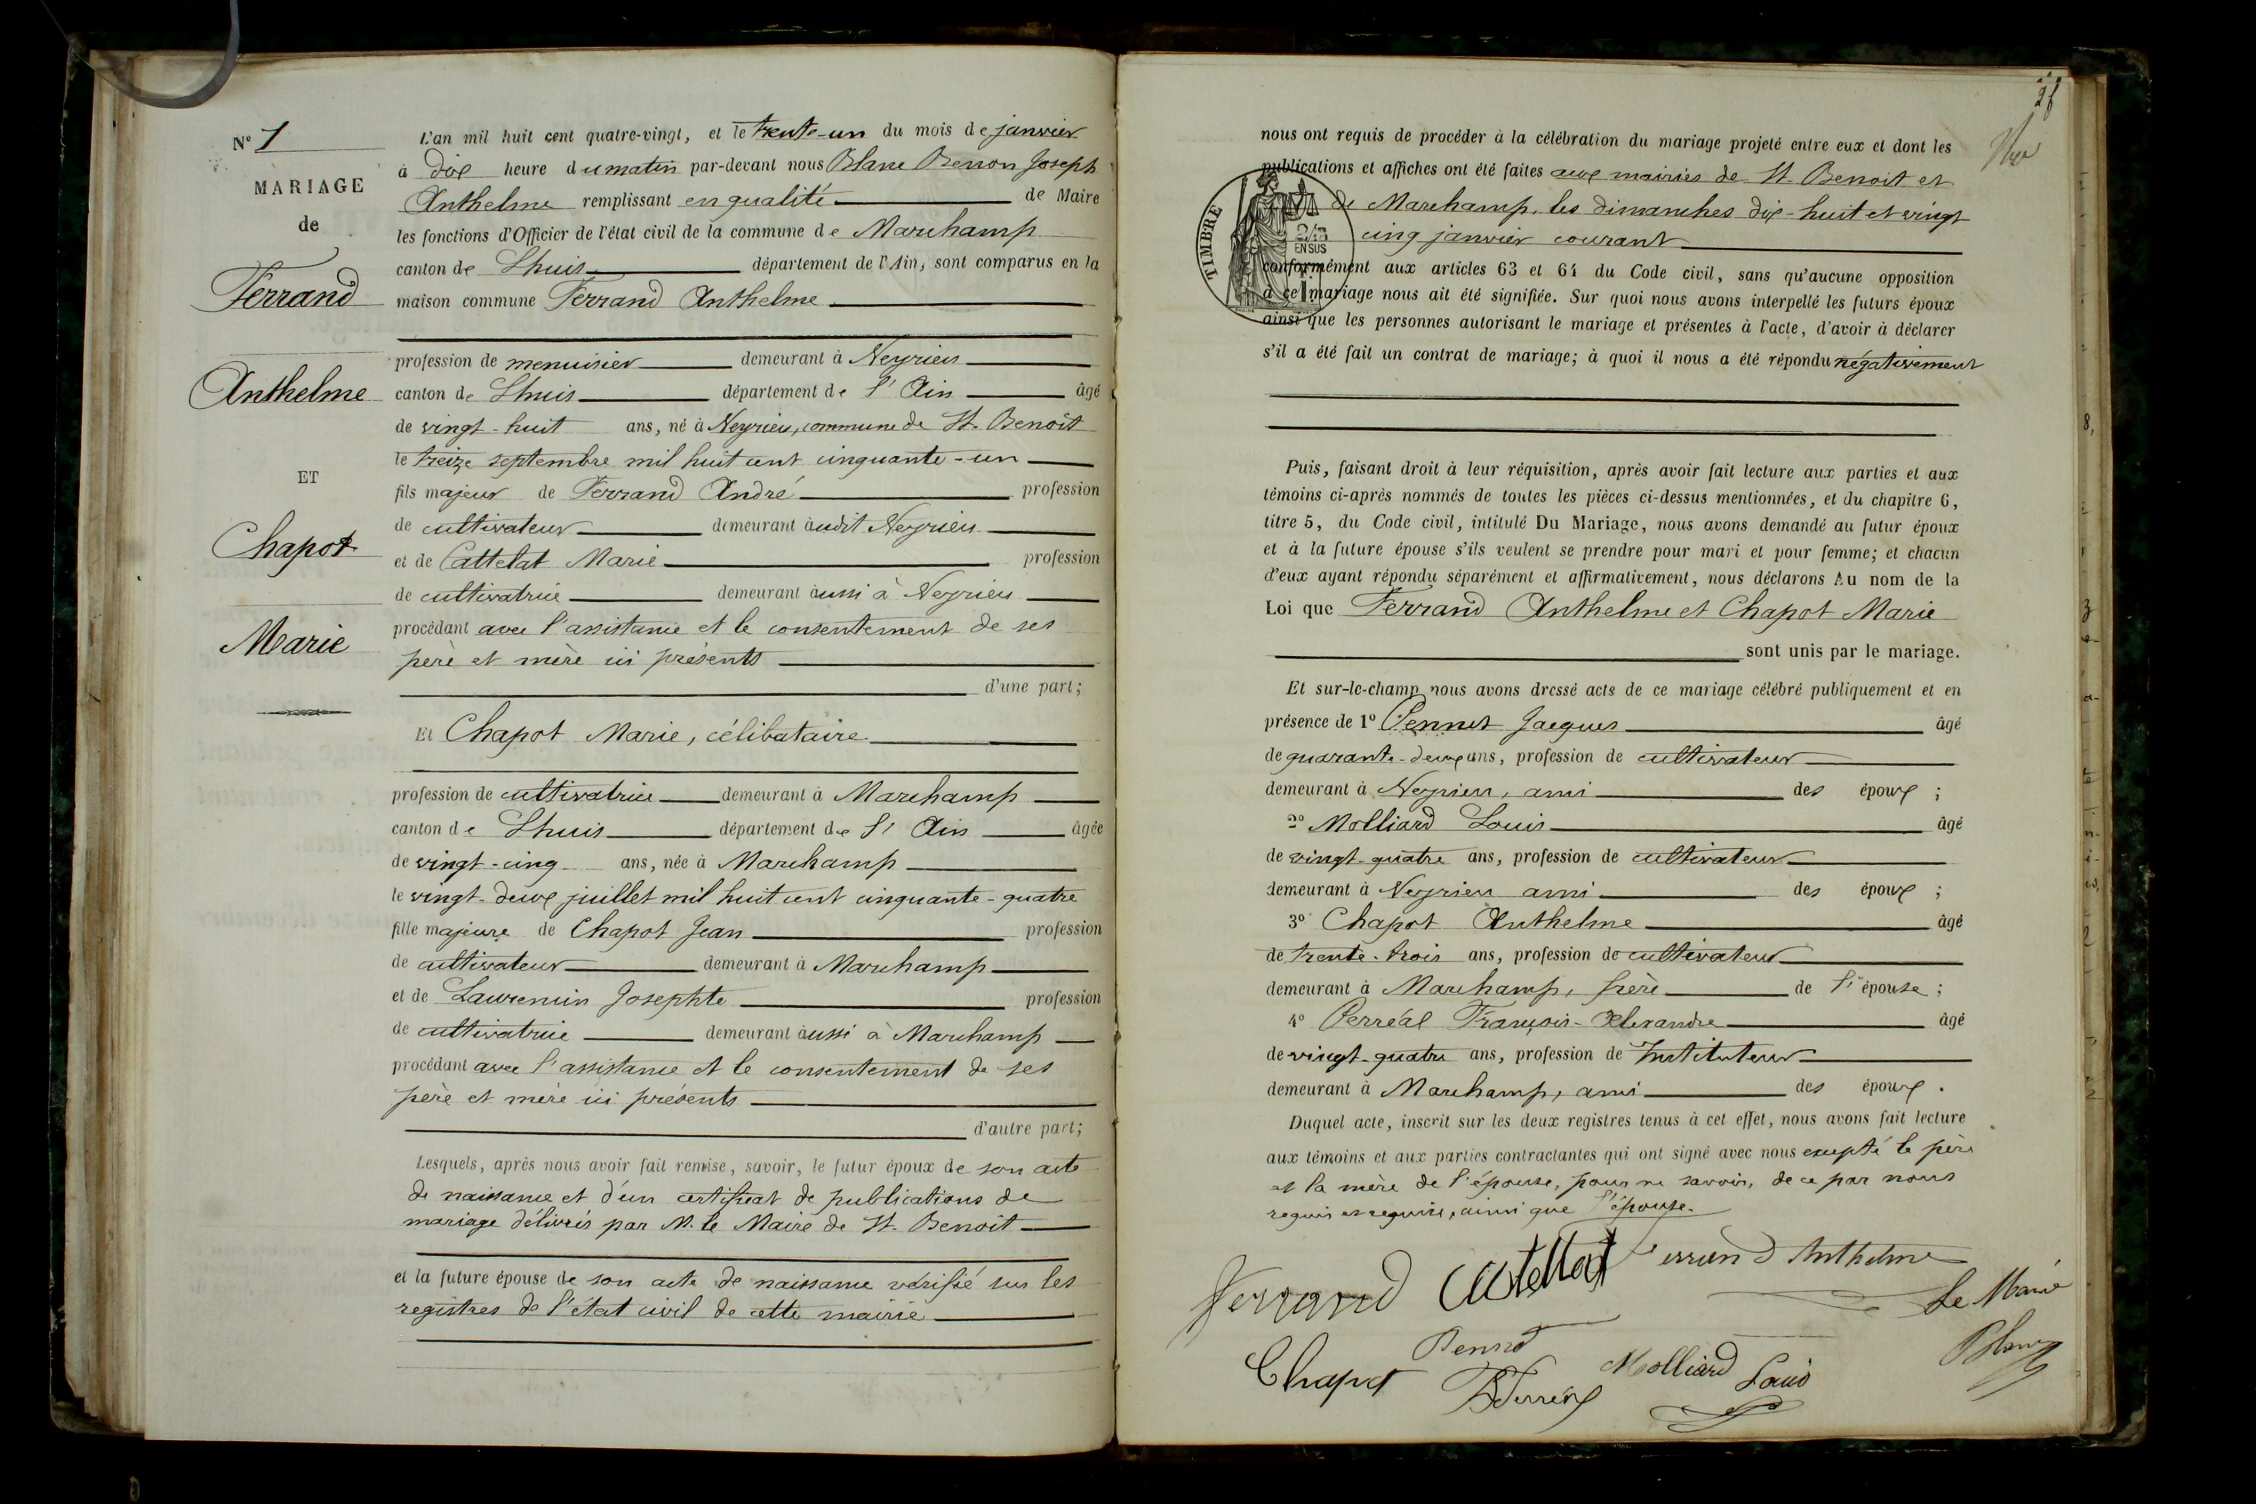 N° 1
MARIAGE
de
Ferrand
Anthelme
ET
Chapot
Marie
L'an mil huit cent quatre-vingt, et le trente-un du mois de janvier
à dix heure du matin par-devant nous Blanc Benon Joseph
Anthelme remplissant en qualité de Maire
les fonctions d'Officier de l'état civil de la commune de Marchamp
canton de Lhuis département de l'Ain, sont comparus en la
maison commune Ferrand Anthelme
profession de menuisier demeurant à Neyrieu
canton de Lhuis département de l'Ain âgé
de vingt-huit ans, né à Neyrieu, commune de St. Benoît
le treize septembre mil huit cent cinquante-un
fils majeur de Ferrand André profession
de cultivateur demeurant audit Neyrieu
et de Cattelat Marie profession
de cultivatrice demeurant aussi à Neyrieu
procédant avec l'assistance et le consentement de ses
père et mère ici présents
d'une part;
Et Chapot Marie, célibataire
profession de cultivatrice demeurant à Marchamp
canton de Lhuis département de l'Ain âgée
de vingt-cinq ans, née à Marchamp
le vingt-deux juillet mil huit cent cinquante-quatre
fille majeure de Chapot Jean profession
de cultivateur demeurant à Marchamp
et de Laurencin Josephte profession
de cultivatrice demeurant aussi à Marchamp
procédant avec l'assistance et le consentement de ses
père et mère ici présents
d'autre part;
Lesquels, après nous avoir fait remise, savoir, le futur époux de son acte
de naissance et d'un certificat de publications de
mariage délivrés par M. le Maire de St. Benoît
et la future épouse de son acte de naissance vérifié sur les
registres de l'état civil de cette mairie
nous ont requis de procéder à la célébration du mariage projeté entre eux et dont les
publications et affiches ont été faites aux mairies de St. Benoit et
de Marchamp, les dimanches dix-huit et vingt
cinq janvier courant
TIMBRE
2/10
EN SUS
conformément aux articles 63 et 64 du Code civil, sans qu'aucune opposition
à ce mariage nous ait été signifiée. Sur quoi nous avons interpellé les futurs époux
ainsi que les personnes autorisant le mariage et présentes à l'acte, d'avoir à déclarer
s'il a été fait un contrat de mariage; à quoi il nous a été répondu négativement
Puis, faisant droit à leur réquisition, après avoir fait lecture aux parties et aux
témoins ci-après nommés de toutes les pièces ci-dessus mentionnées, et du chapitre 6,
titre 5, du Code civil, intitulé Du Mariage, nous avons demandé au futur époux
et à la future épouse s'ils veulent se prendre pour mari et pour femme; et chacun
d'eux ayant répondu séparément et affirmativement, nous déclarons Au nom de la
Loi que Ferrand Anthelme et Chapot Marie
sont unis par le mariage.
Et sur-le-champ nous avons dressé acts de ce mariage célébré publiquement et en
présence de 1° Pennet Jacques âgé
de quarante-deux ans, profession de cultivateur
demeurant à Neyrieu, ami des époux ;
2° Molliard Louis âgé
de vingt-quatre ans, profession de cultivateur
demeurant à Neyrieu ami des époux ;
3° Chapot Anthelme âgé
de trente-trois ans, profession de cultivateur
demeurant à Marchamp, frère de l'épouse ;
4° Perréal François-Alexandre âgé
de vingt-quatre ans, profession de Instituteur
demeurant à Marchamp, ami des époux .
Duquel acte, inscrit sur les deux registres tenus à cet effet, nous avons fait lecture
aux témoins et aux parties contractantes qui ont signé avec nous excepté le père
et la mère de l'épouse, pour ne savoir, de ce par nous
requis et requise, ainsi que l'épouse.
Ferrand Catellat Ferrand Anthelme
Le Maire
Chapot Pennet Molliard Louis Blanc
Perréal